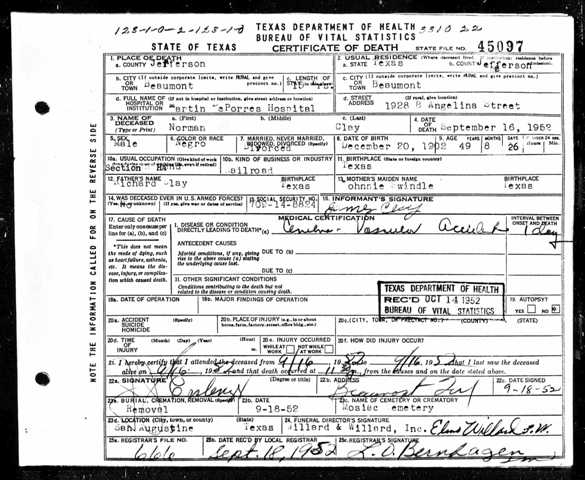 TEXAS DEPARTMENT OF HEALTH
BUREAU OF VITAL STATISTICS
STATE OF TEXAS CERTIFICATE OF DEATH STATE FILE NO. 45097
1. PLACE OF DEATH 2. USUAL RESIDENCE
a. COUNTY Jefferson a. STATE Texas b. COUNTY Jefferson
b. CITY (If outside corporate limits, write RURAL and give precinct no.) c. LENGTH OF c. CITY (If outside corporate limits, write RURAL and give precinct no.)
OR TOWN Beaumont OR TOWN Beaumont
d. FULL NAME OF (If not in hospital or institution, give street address or location) d. STREET
HOSPITAL OR INSTITUTION Hospital ADDRESS 1928 B Angelina Street
3. NAME OF DECEASED a. (First) b. (Middle) c. (Last) 4. DATE OF DEATH
(Type or Print) Norman Clay September 16, 1952
5. SEX 6. COLOR OR RACE 7. MARRIED, NEVER MARRIED, WIDOWED, DIVORCED (Specify) 8. DATE OF BIRTH 9. AGE
Male Negro Divorced December 20, 1902 49 8 26
10a. USUAL OCCUPATION 10b. KIND OF BUSINESS OR INDUSTRY 11. BIRTHPLACE (State or foreign country)
Section Hand Railroad Texas
12. FATHER'S NAME BIRTHPLACE 13. MOTHER'S MAIDEN NAME BIRTHPLACE
Richard Clay Texas Johnnie Swindle Texas
14. WAS DECEASED EVER IN U.S. ARMED FORCES? 15. SOCIAL SECURITY NO. 16. INFORMANT'S SIGNATURE
No Clay
17. CAUSE OF DEATH MEDICAL CERTIFICATION INTERVAL BETWEEN ONSET AND DEATH
Enter only one cause per line for (a), (b), and (c)
I. DISEASE OR CONDITION DIRECTLY LEADING TO DEATH* (a) Cerebro Vascular Accident 1 day
*This does not mean the mode of dying, such as heart failure, asthenia, etc. It means the disease, injury, or complication which caused death.
ANTECEDENT CAUSES
Morbid conditions, if any, giving rise to the above cause (a) stating the underlying cause last.
DUE TO (b)
DUE TO (c)
II. OTHER SIGNIFICANT CONDITIONS
Conditions contributing to the death but not related to the disease or condition causing death.
TEXAS DEPARTMENT OF HEALTH
REC'D OCT 14 1952
BUREAU OF VITAL STATISTICS
18a. DATE OF OPERATION 18b. MAJOR FINDINGS OF OPERATION 19. AUTOPSY?
YES NO
20a. ACCIDENT SUICIDE HOMICIDE (Specify) 20b. PLACE OF INJURY 20c. (CITY, TOWN, OR PRECINCT NO.) (COUNTY) (STATE)
20d. TIME OF INJURY (Month) (Day) (Year) (Hour) 20e. INJURY OCCURRED WHILE AT WORK NOT WHILE AT WORK 20f. HOW DID INJURY OCCUR?
21. I hereby certify that I attended the deceased from 9/16 1952 to 9/16, 1952 that I last saw the deceased
alive on 9/16 and that death occurred at from the causes and on the date stated above.
22a. SIGNATURE (Degree or title) 22b. ADDRESS 22c. DATE SIGNED
Beaumont Tex 9-18-52
23a. BURIAL, CREMATION, REMOVAL (Specify) 23b. DATE 23c. NAME OF CEMETERY OR CREMATORY
Removal 9-18-52 Mosiec cemetery
23d. LOCATION (City, town, or county) (State) 24. FUNERAL DIRECTOR'S SIGNATURE
San Augustine Texas Willard & Willard, Inc. Elmo Willard
25a. REGISTRAR'S FILE NO. 25b. DATE REC'D BY LOCAL REGISTRAR 25c. REGISTRAR'S SIGNATURE
666 Sept. 18, 1952 L. O. Bernhagen
NOTE THE INFORMATION CALLED FOR ON THE REVERSE SIDE